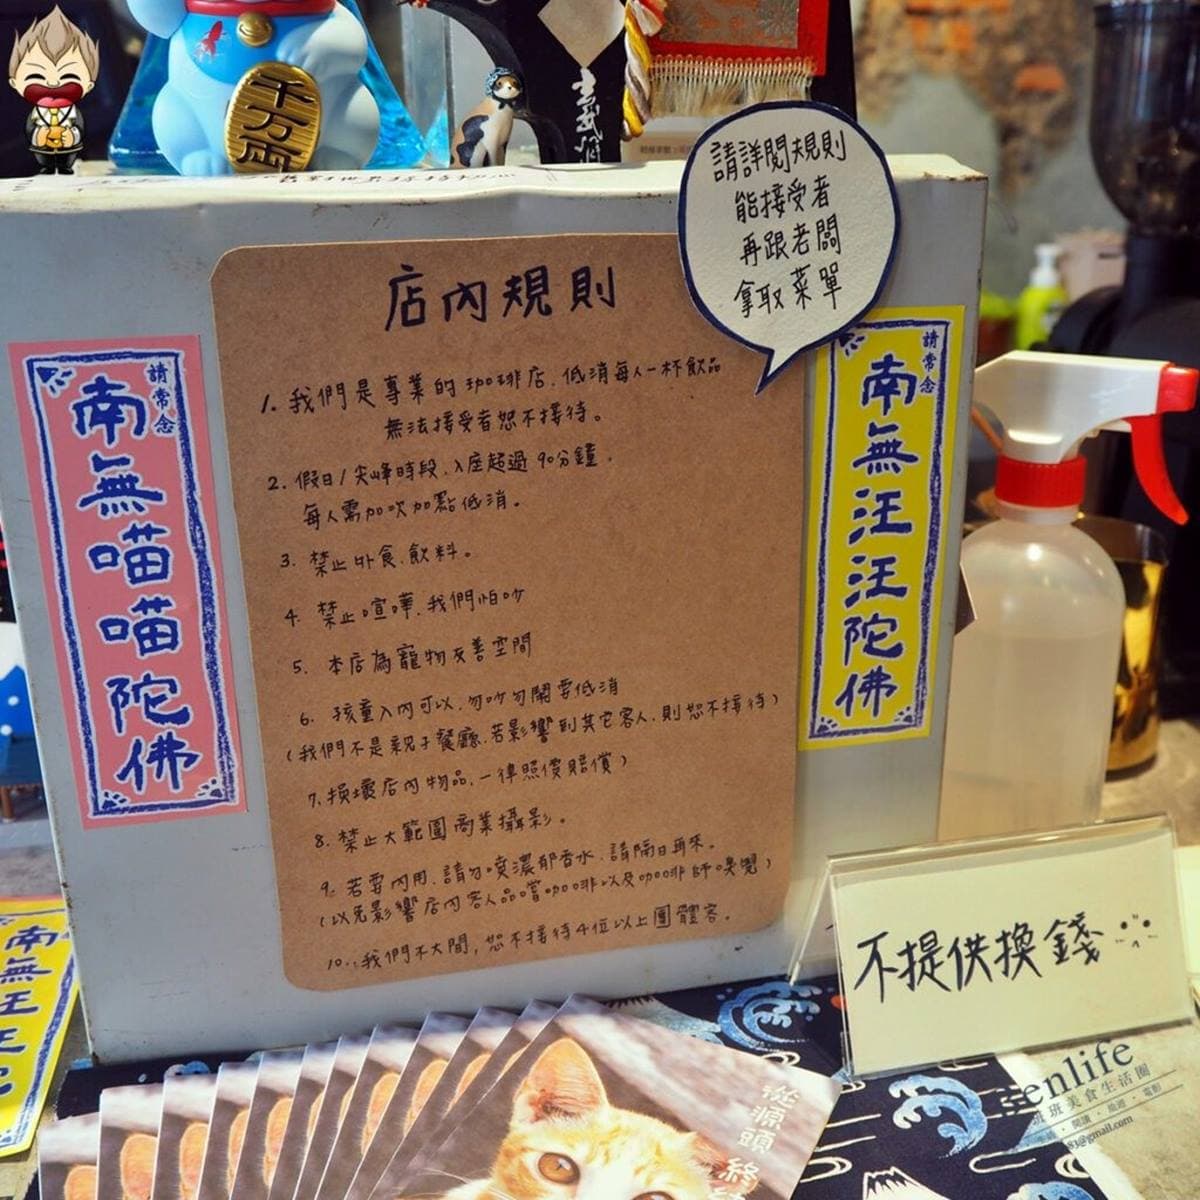 千万両
請詳閱規則
能接受者
再跟老闆
拿取菜單
店內規則
1. 我們是專業的咖啡店、低消每人一杯飲品
無法接受者恕不接待。
2. 假日/尖峰時段、入座超過90分鐘。
每人需加次加點低消。
3. 禁止外食、飲料。
4. 禁止喧嘩、我們怕吵
5. 本店為寵物友善空間
6. 孩童入內可以、勿吵勿鬧要低消
(我們不是親子餐廳、若影響到其它客人、則恕不接待)
7. 損壞店內物品、一律照價賠償)
8. 禁止大範圍商業攝影。
9. 若要內用、請勿噴濃郁香水、請隔日再來。
(以免影響店內客人品嚐咖啡以及咖啡師嗅覺)
10. 我們不大間, 恕不接待4位以上團體客。
請常念
南無喵喵陀佛
請常念
南無汪汪陀佛
不提供換錢
南無汪
從源頭
enlife
班班美食生活圈
83@gmail.com